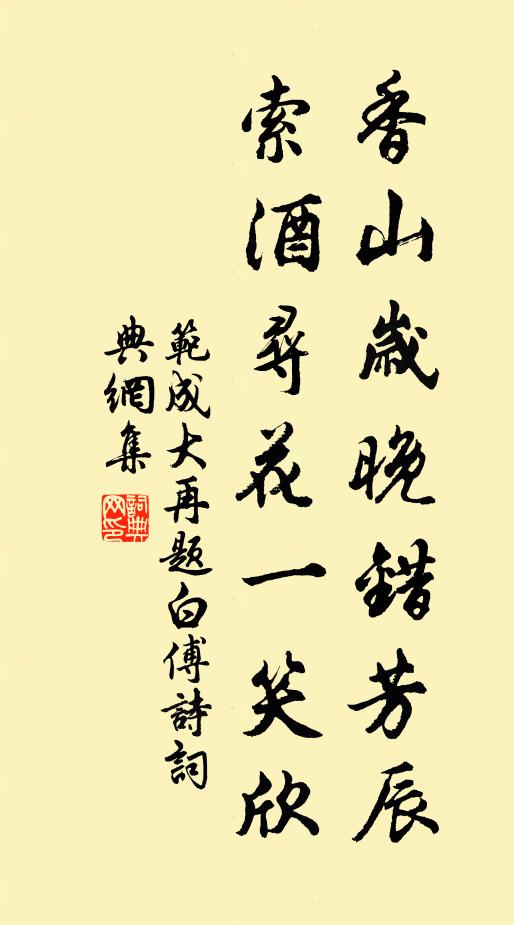 香山歲晚錯芳辰
索酒尋花一笑欣
範成大再題白傅詩詞
典網集
詞典網印